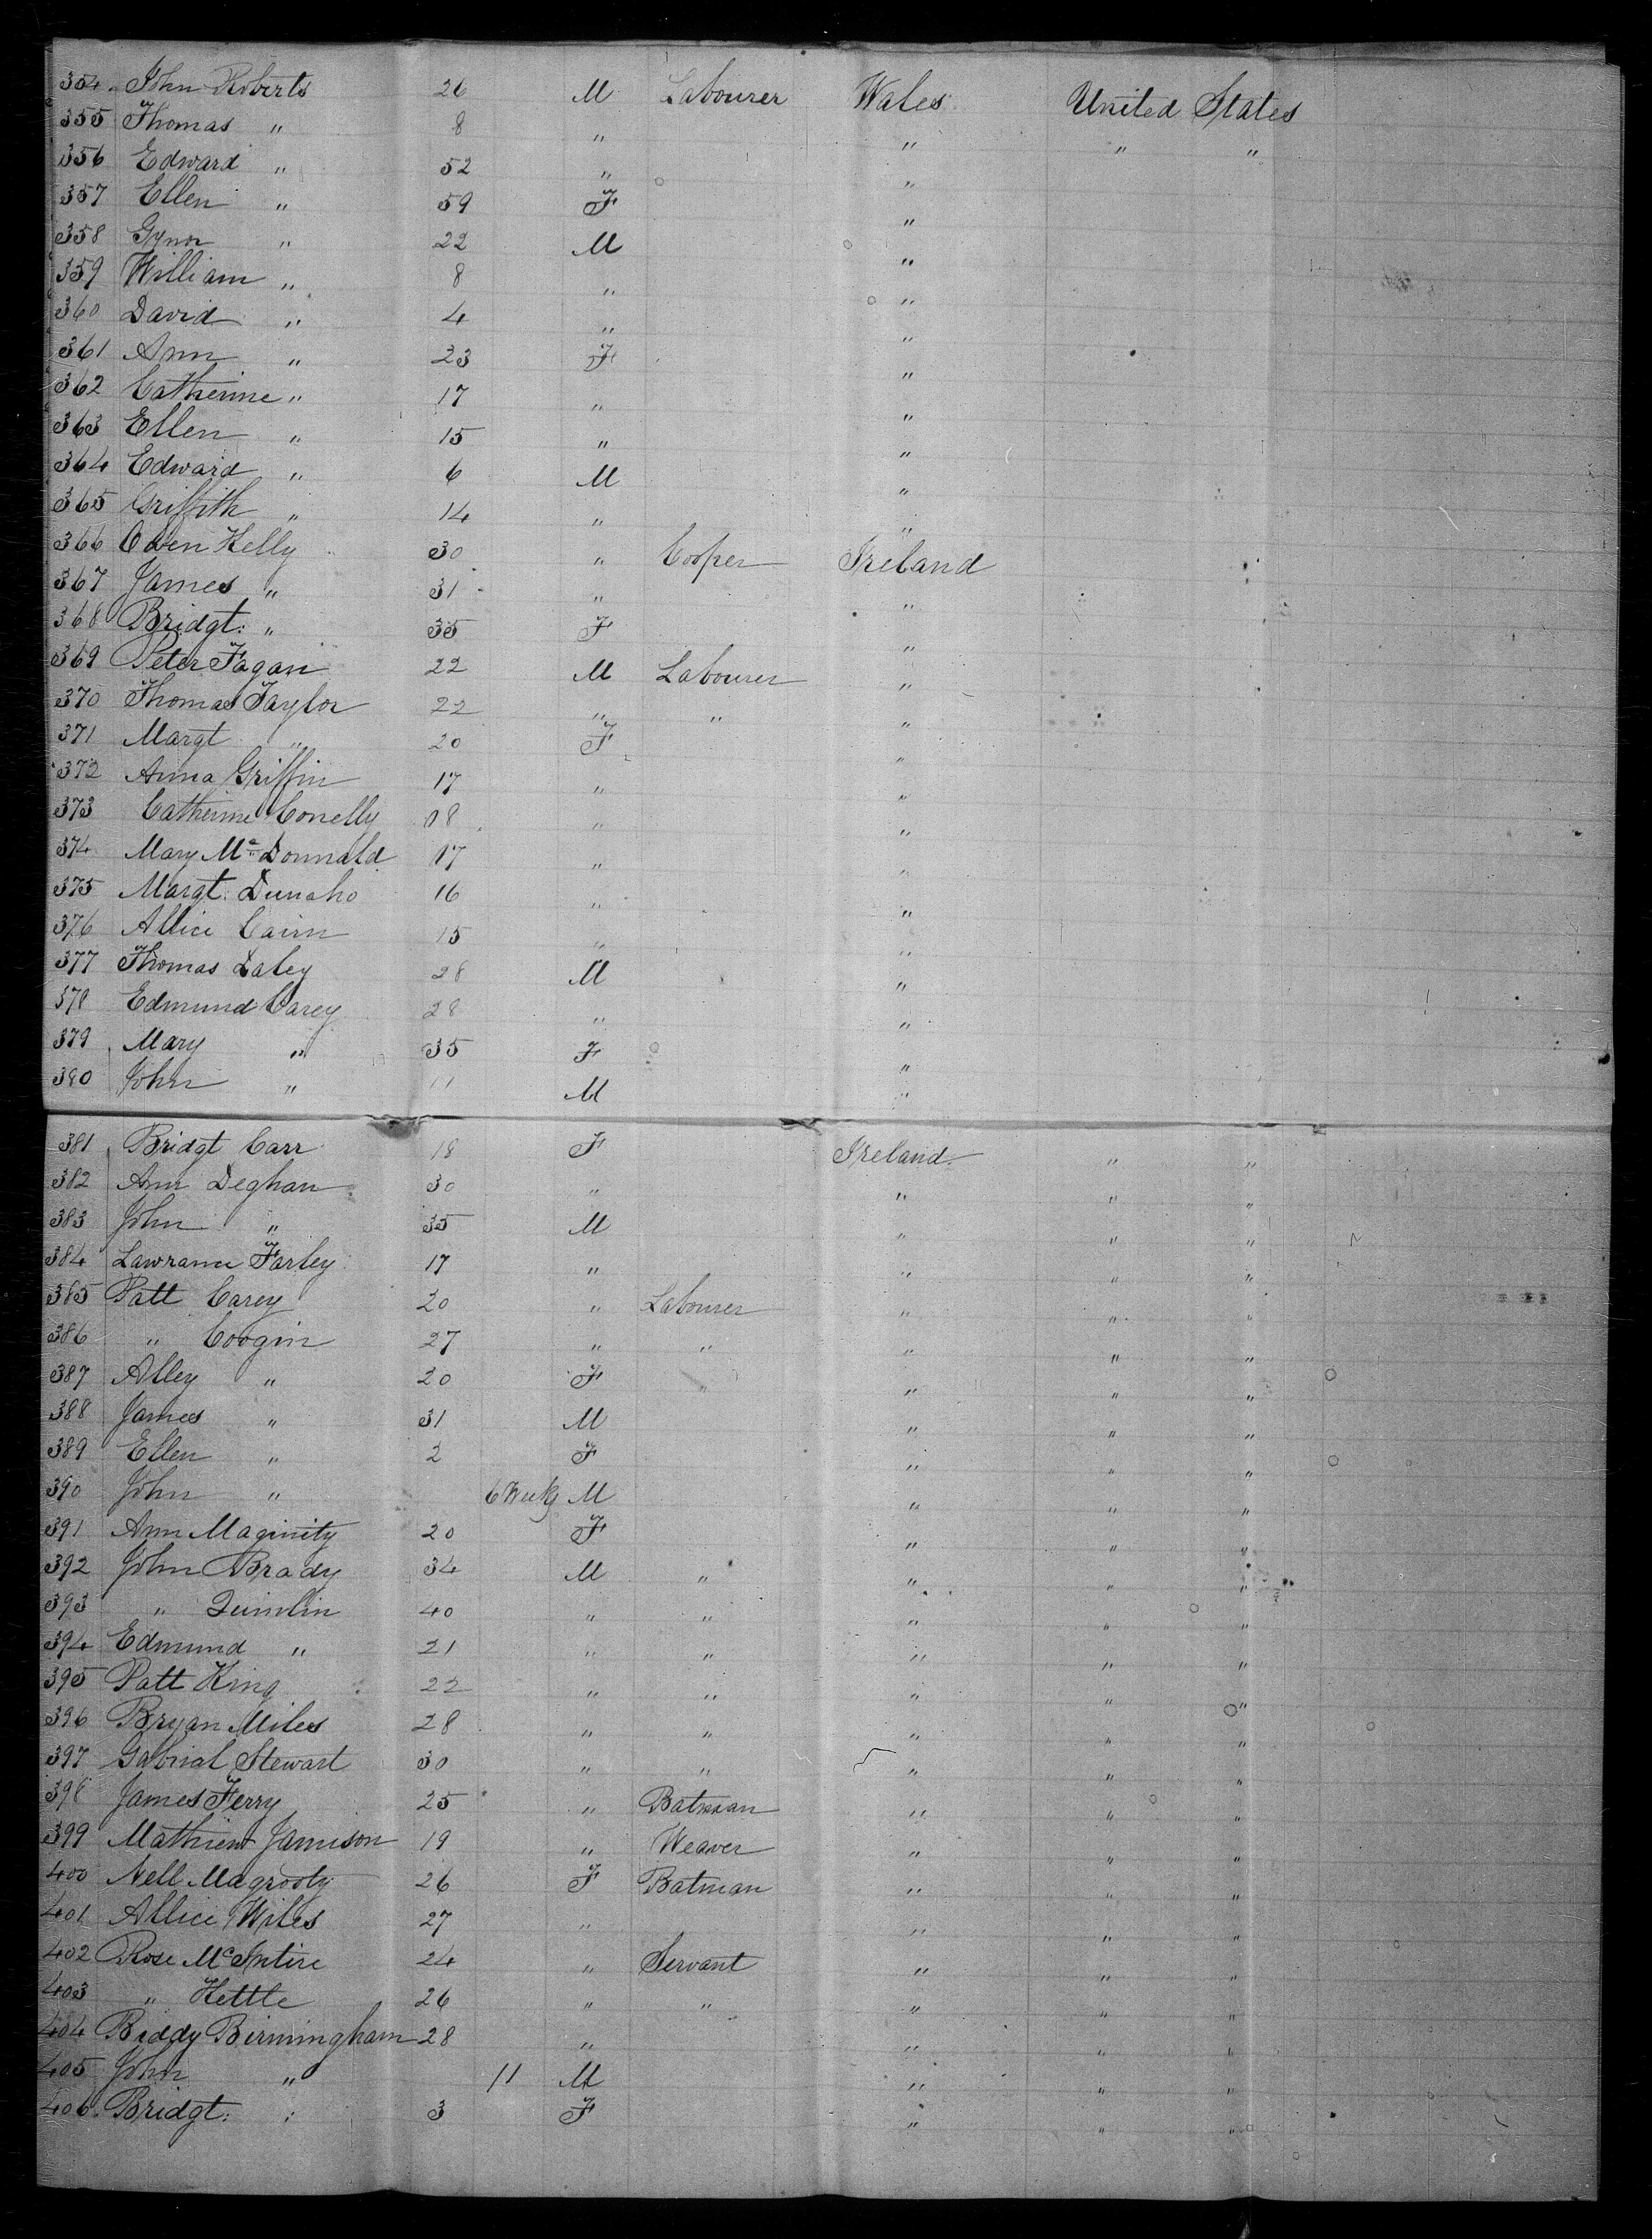 354 John Roberts 26 M Labourer Wales United States
355 Thomas " 8 " " " "
356 Edward " 52 " "
357 Ellen " 59 F "
358 Gynor " 22 M "
359 William " 8 " "
360 David " 4 " "
361 Ann " 23 F "
362 Catherine " 17 " "
363 Ellen " 15 " "
364 Edward " 6 M "
365 Griffith " 14 " "
366 Owen Kelly 30 " Cooper Ireland
367 James " 31 " "
368 Bridgt: " 35 F "
369 Peter Fagan 22 M Labourer "
370 Thomas Taylor 22 " " "
371 Margt " 20 F "
372 Anna Griffin 17 " "
373 Catherine Conelly 08 " "
374 Mary Mc Donnald 17 " "
375 Margt. Dunaho 16 " "
376 Allice Cairn 15 " "
377 Thomas Daley 28 M "
378 Edmund Carey 28 " "
379 Mary " 35 F "
380 John " 11 M "
381 Bridgt Carr 18 F Ireland " "
382 Ann Deghan 30 " " " "
383 John " 35 M " " "
384 Lawrance Farley 17 " " " "
385 Patt Carey 20 " Labourer " " "
386 " Coogin 27 " " " " "
387 Alley " 20 F " " " "
388 James " 31 M " " "
389 Ellen " 2 F " " "
390 John " 6 Weeks M " " "
391 Ann Maginity 20 F " " "
392 John Brady 34 M " " " "
393 " Quinlin 40 " " " " "
394 Edmund " 21 " " " " "
395 Patt King 22 " " " " "
396 Bryan Miles 28 " " " " "
397 Gabrial Stewart 30 " " " " "
398 James Ferry 25 " Batman " " "
399 Mathiew Jamison 19 " Weaver " " "
400 Nell Magrooty 26 F Batman " " "
401 Allice Wiles 27 " " " "
402 Rose McIntire 24 " Servant " " "
403 " Kettle 26 " " " " "
404 Biddy Birmingham 28 " " " "
405 John " 11 M " " "
406 Bridgt: " 3 F " " "